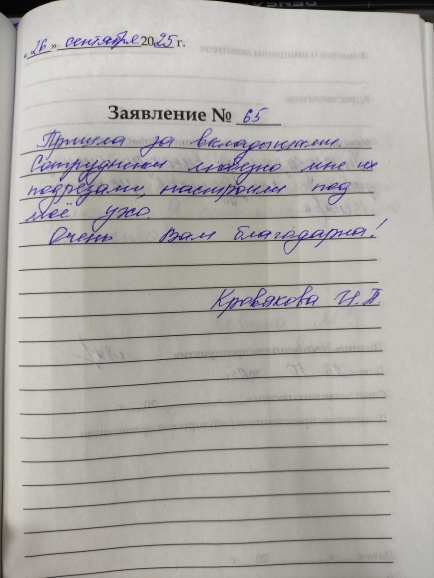 «26» сентября 2025 г.
Заявление № 65
Пришла за вкладышами.
Сотрудники любезно мне их
подрезали, настроили под
моё ухо
Очень Вам благодарна!
Кровякова И.П.